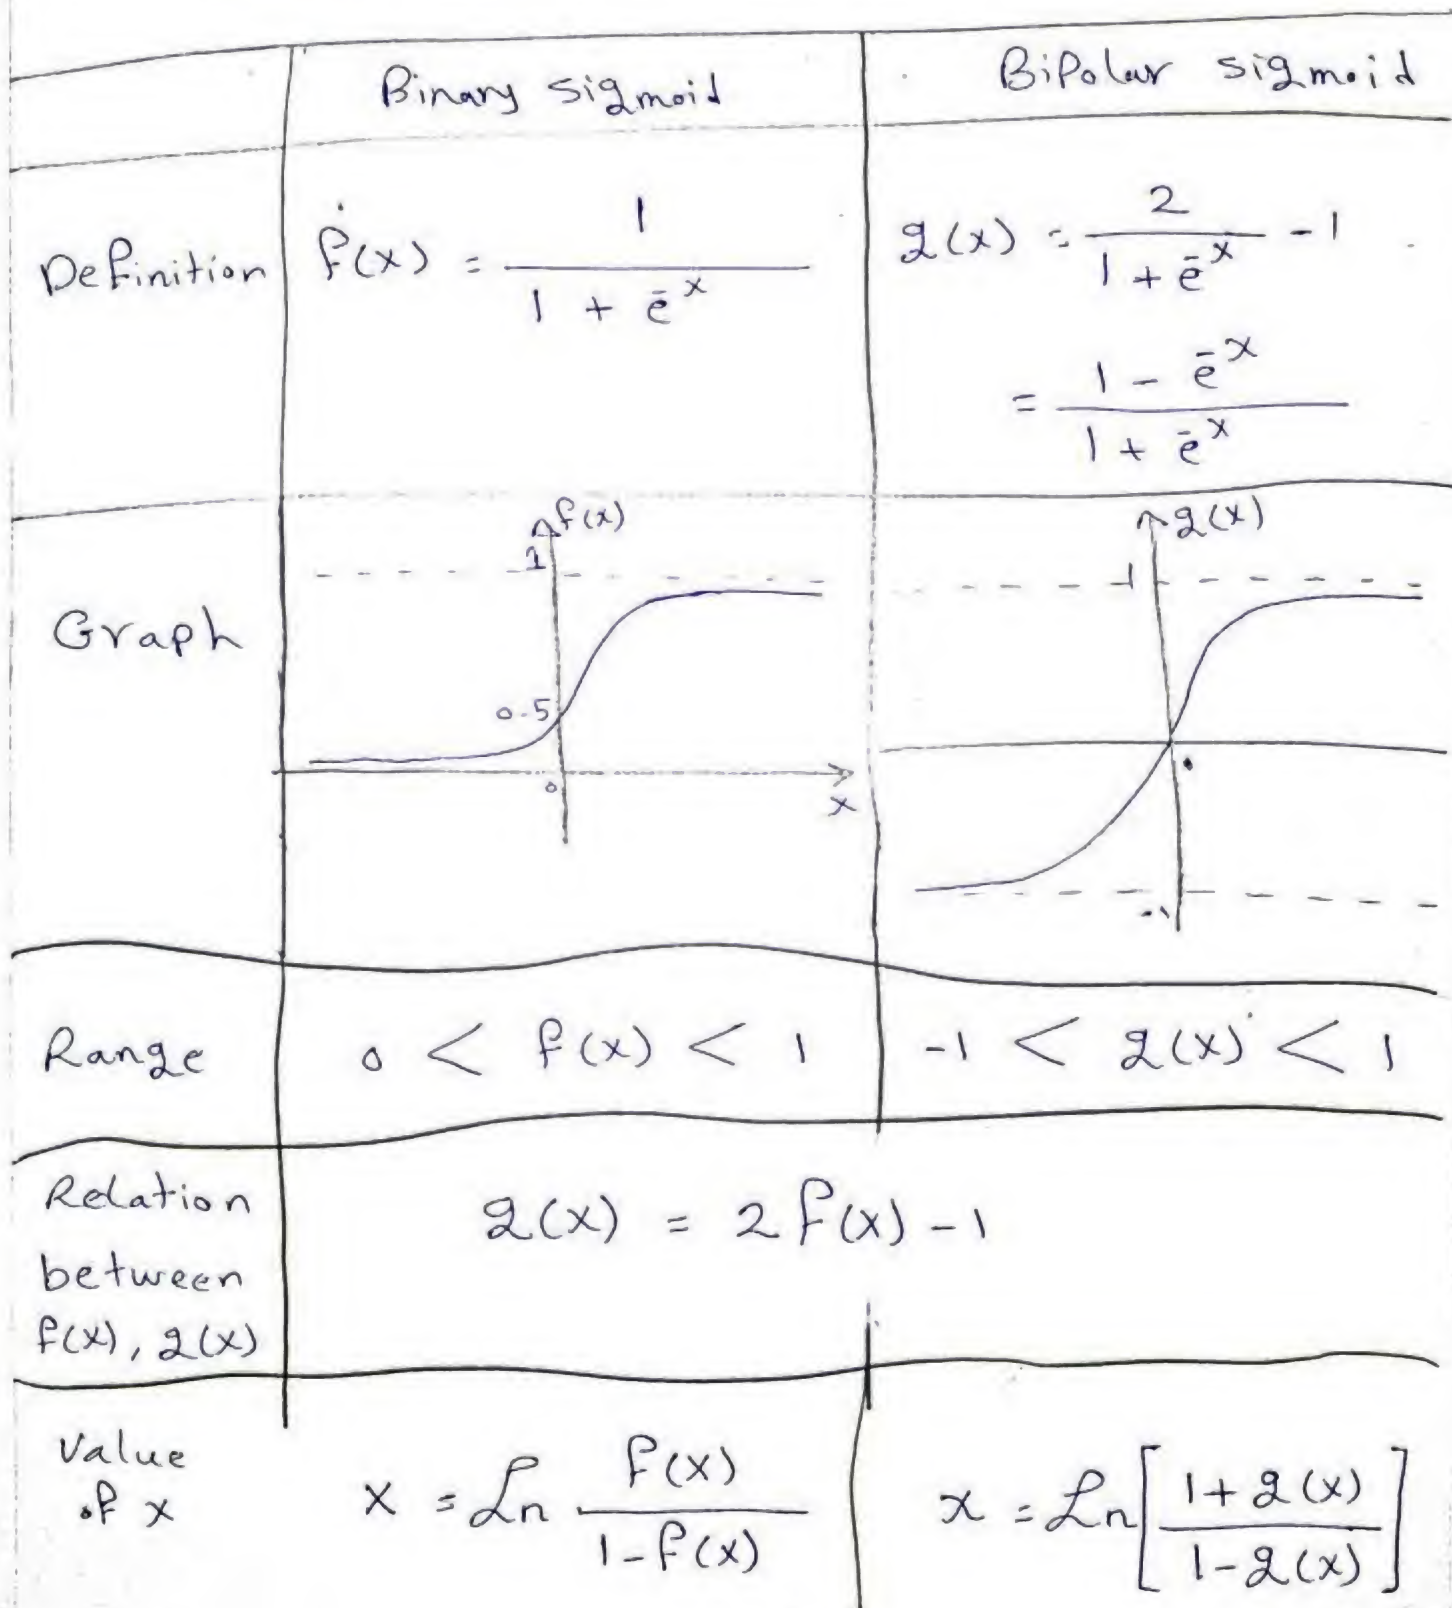 Binary sigmoid
Bipolar sigmoid
Definition
f(x) = 1 / (1 + e⁻ˣ)
g(x) = 2 / (1 + e⁻ˣ) - 1
= (1 - e⁻ˣ) / (1 + e⁻ˣ)
Graph
f(x)
1
0.5
0
x
g(x)
1
0
-1
Range
0 < f(x) < 1
-1 < g(x) < 1
Relation
between
f(x), g(x)
g(x) = 2 f(x) - 1
Value
of x
x = Ln f(x) / (1 - f(x))
x = Ln [ (1 + g(x)) / (1 - g(x)) ]